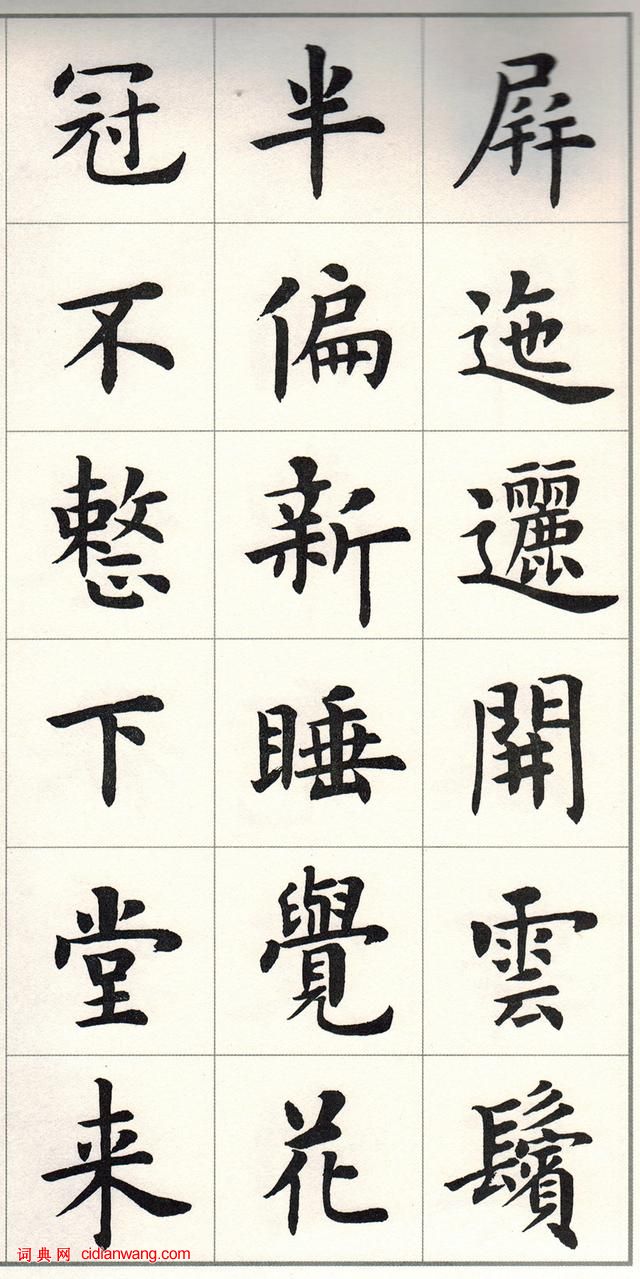 屏迤邐開雲鬢
半偏新睡覺花
冠不整下堂来
词典网 cidianwang.com